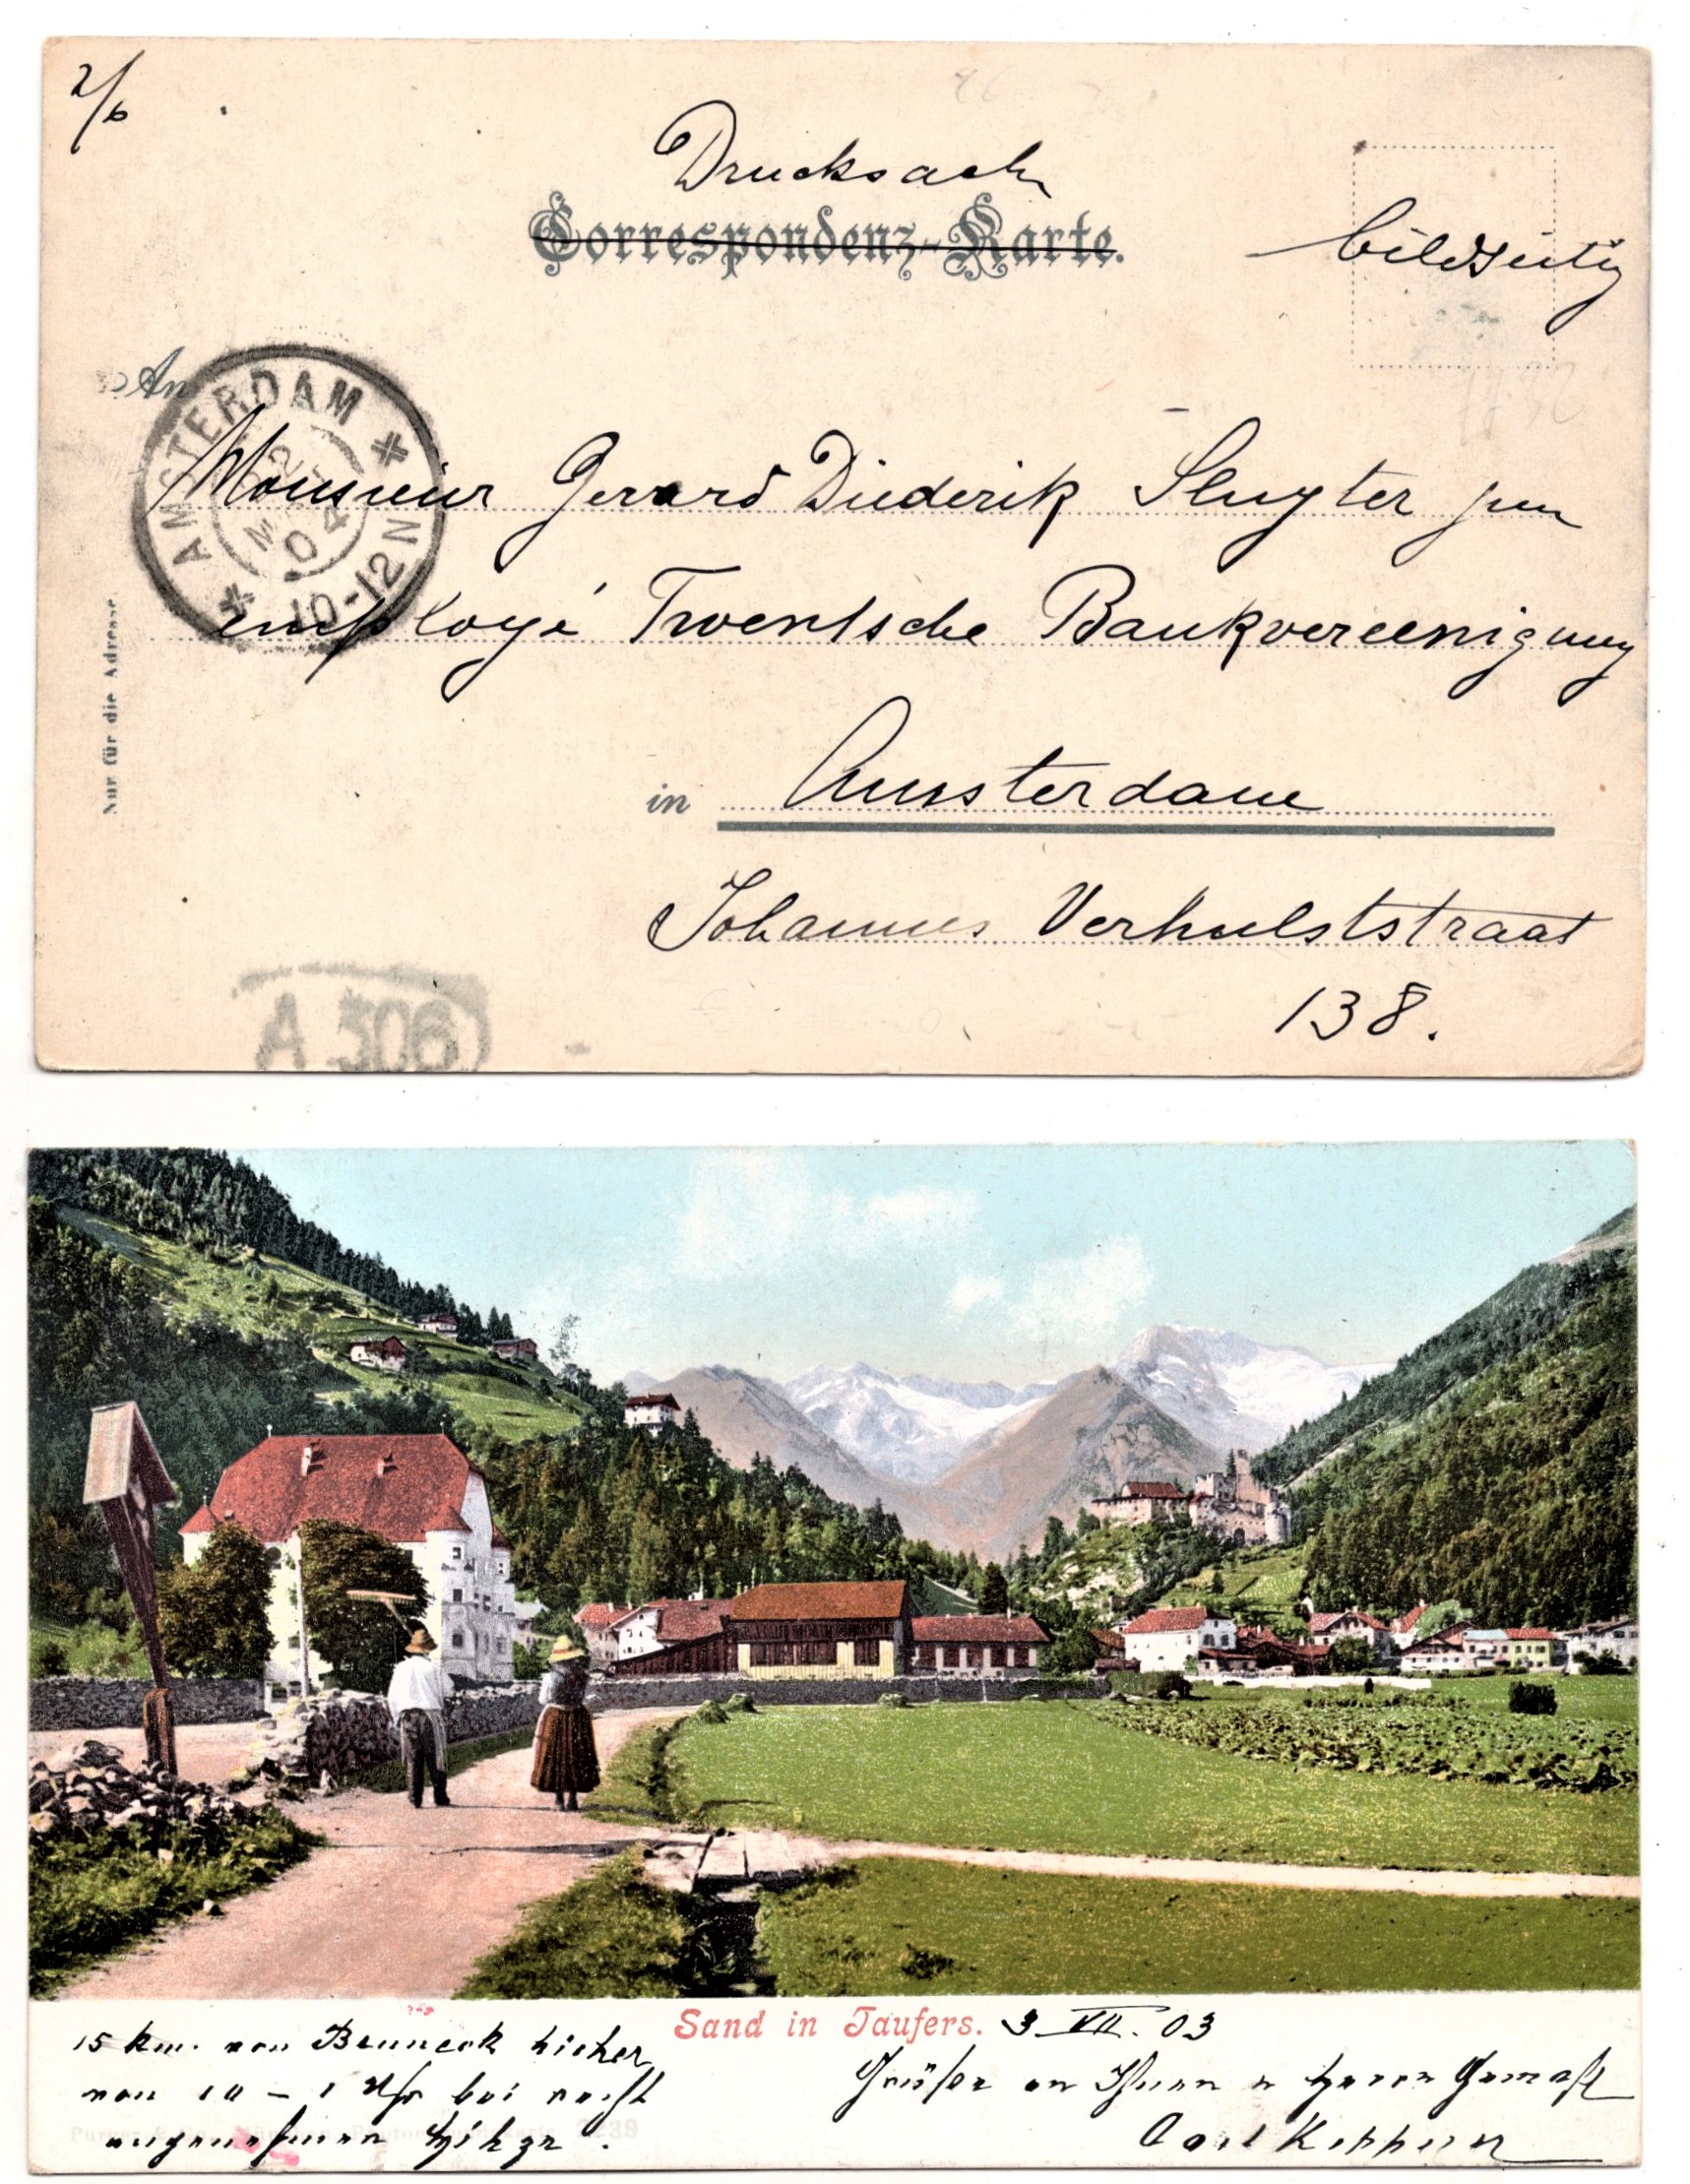 2/6
Drucksache
Correspondenz-Karte.
bildseitig
An
AMSTERDAM
04
10-12N
Monsieur Gerard Diederik Sluyter jun
employé Twentsche Bankvereenigung
in Amsterdam
Johannes Verhulststraat
138.
Nur für die Adresse.
A 306
Sand in Taufers. 3 VII. 03
15 km. von Brunneck hieher
von 10 – 1 Uhr bei recht
angenehmer Hitze.
Grüße an Ihren Herrn Gemahl
Carl
3239